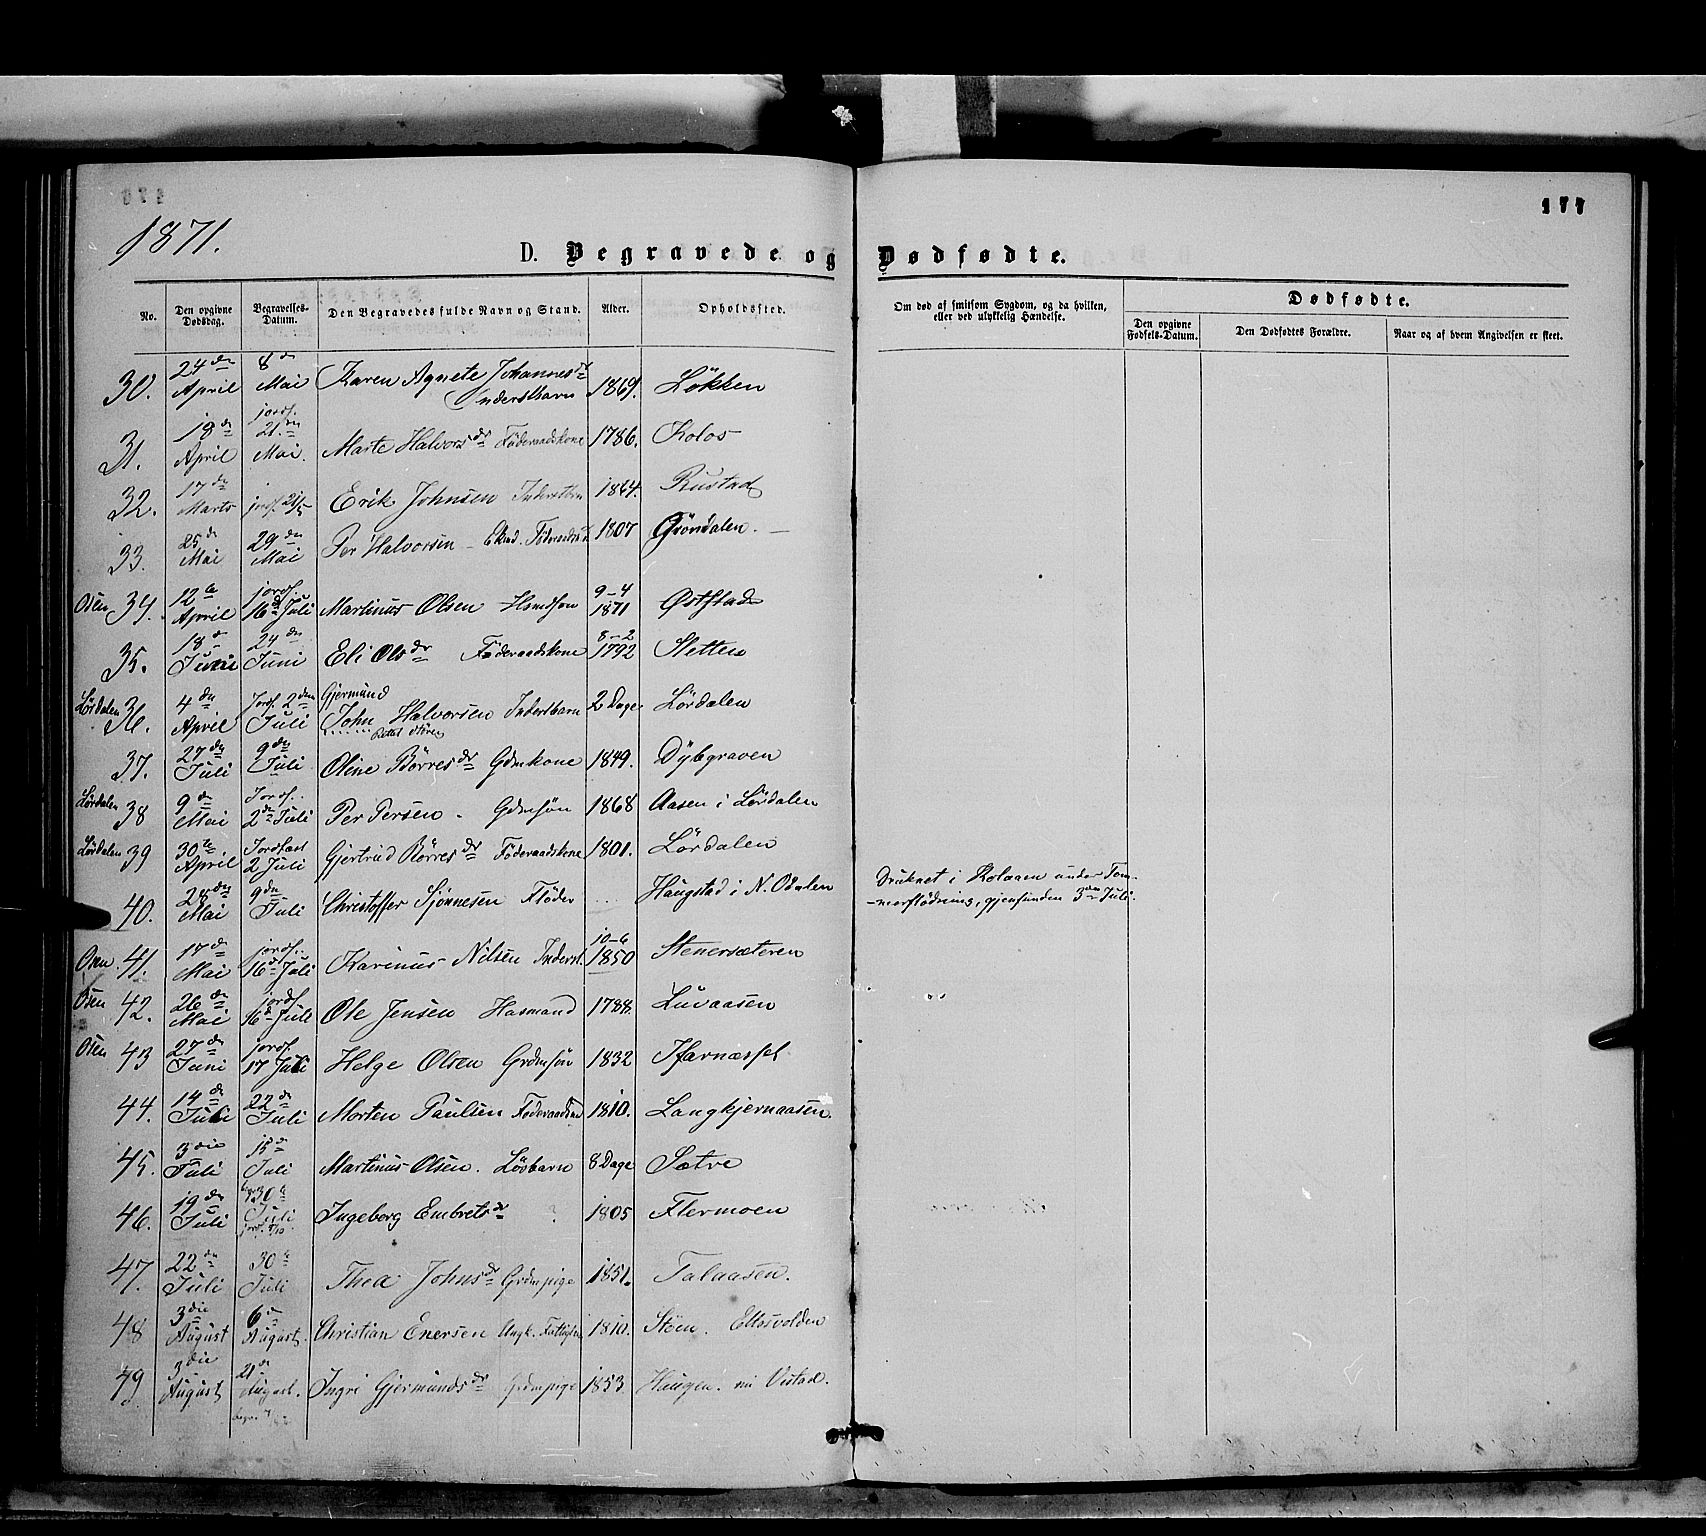 177
1871.
D. Begravede og Dødfødte.
No. Den opgivne Dødsdag. Begravelses-Datum. Den Begravedes fulde Navn og Stand. Alder. Opholdssted. Om død af smitsom Sygdom, og da hvilken, eller ved ulykkelig Hændelse. Dødfødte.
Den opgivne Fødsels-Datum. Den Dødfødtes Forældre. Naar og af hvem Angivelsen er skeet.
30. 24 de April 8 de Mai Karen Agnete Johannesdr Inderstbarn 1869. Løkken
31. 18 de April jordf. 21 de Mai. Marte Halvorsdr Föderaadskone 1786. Kolos
32. 17 de Marts jordf. 21/5 Erik Johnsen 1864. Rustad
33. 25 de Mai 29 de Mai Per Halvorsen 1807 Grøndalen.
Osen 34. 12 te April jordf. 16 de Juli Martinus Olsen Hsmdsøn 9-4 1871 Øststad
35. 18 de Juni 24 de Juni Eli Olsdr Føderaadskone 8-2 1792 Sletten
Lørdalen 36. 4 de April Jordf. 2 den Juli Gjermund John Halvorsen Inderstbarn 2 Dage. Lørdalen
37. 27 de Juli 9 de Juli Oline Børresdr Gdmkone 1849. Dybgraven
Lørdalen 38 9 de Mai Jordf. 2 de Juli Per Persen. Gdmsøn 1868 Aasen i Lørdalen
Lørdalen 39 30 te April Jordfæst 2 Juli Gjertrud Börresdr Föderaadskone 1801. Lørdalen
40. 28 de Mai 9 de Juli Christoffer Sjønnesen Fløder ... Haugstad i N. Odalen Druknet i under Tøm-
-merflødning, gjenfunden 3 die Juli.
Osen 41. 17 de Mai jordf. 16 de Juli Karinus Nilsen Inderst. 10-6 1850 Stenersæteren
Osen 42. 26 de Mai jordf. 16 de Juli Ole Jensen Husmand 1788. Luvaasen
Osen 43 27 de Juni jordf. 17 Juli Helge Olsen Grdmsøn 1832
44. 14 de Juli 22 de Juli Morten Paulsen 1810. Langkjernaasen.
45. 3 die Juli 15 de Juli Martinus Olsen. Løsbarn 8 Dage Sætre
46. 19 de Juli 30 te Juli Ingeborg Embretsdr 1805 Flermoen
47. 22 de Juli 30 te Juli Thea Johnsdr Grdmpige 1851.
48 3 die August 6 de August. Christian Enersen Ungk. 1810. Støen.
49. 3 die August 21 de August. Ingri Gjermundsdr Grdmpige 1853. Haugen.